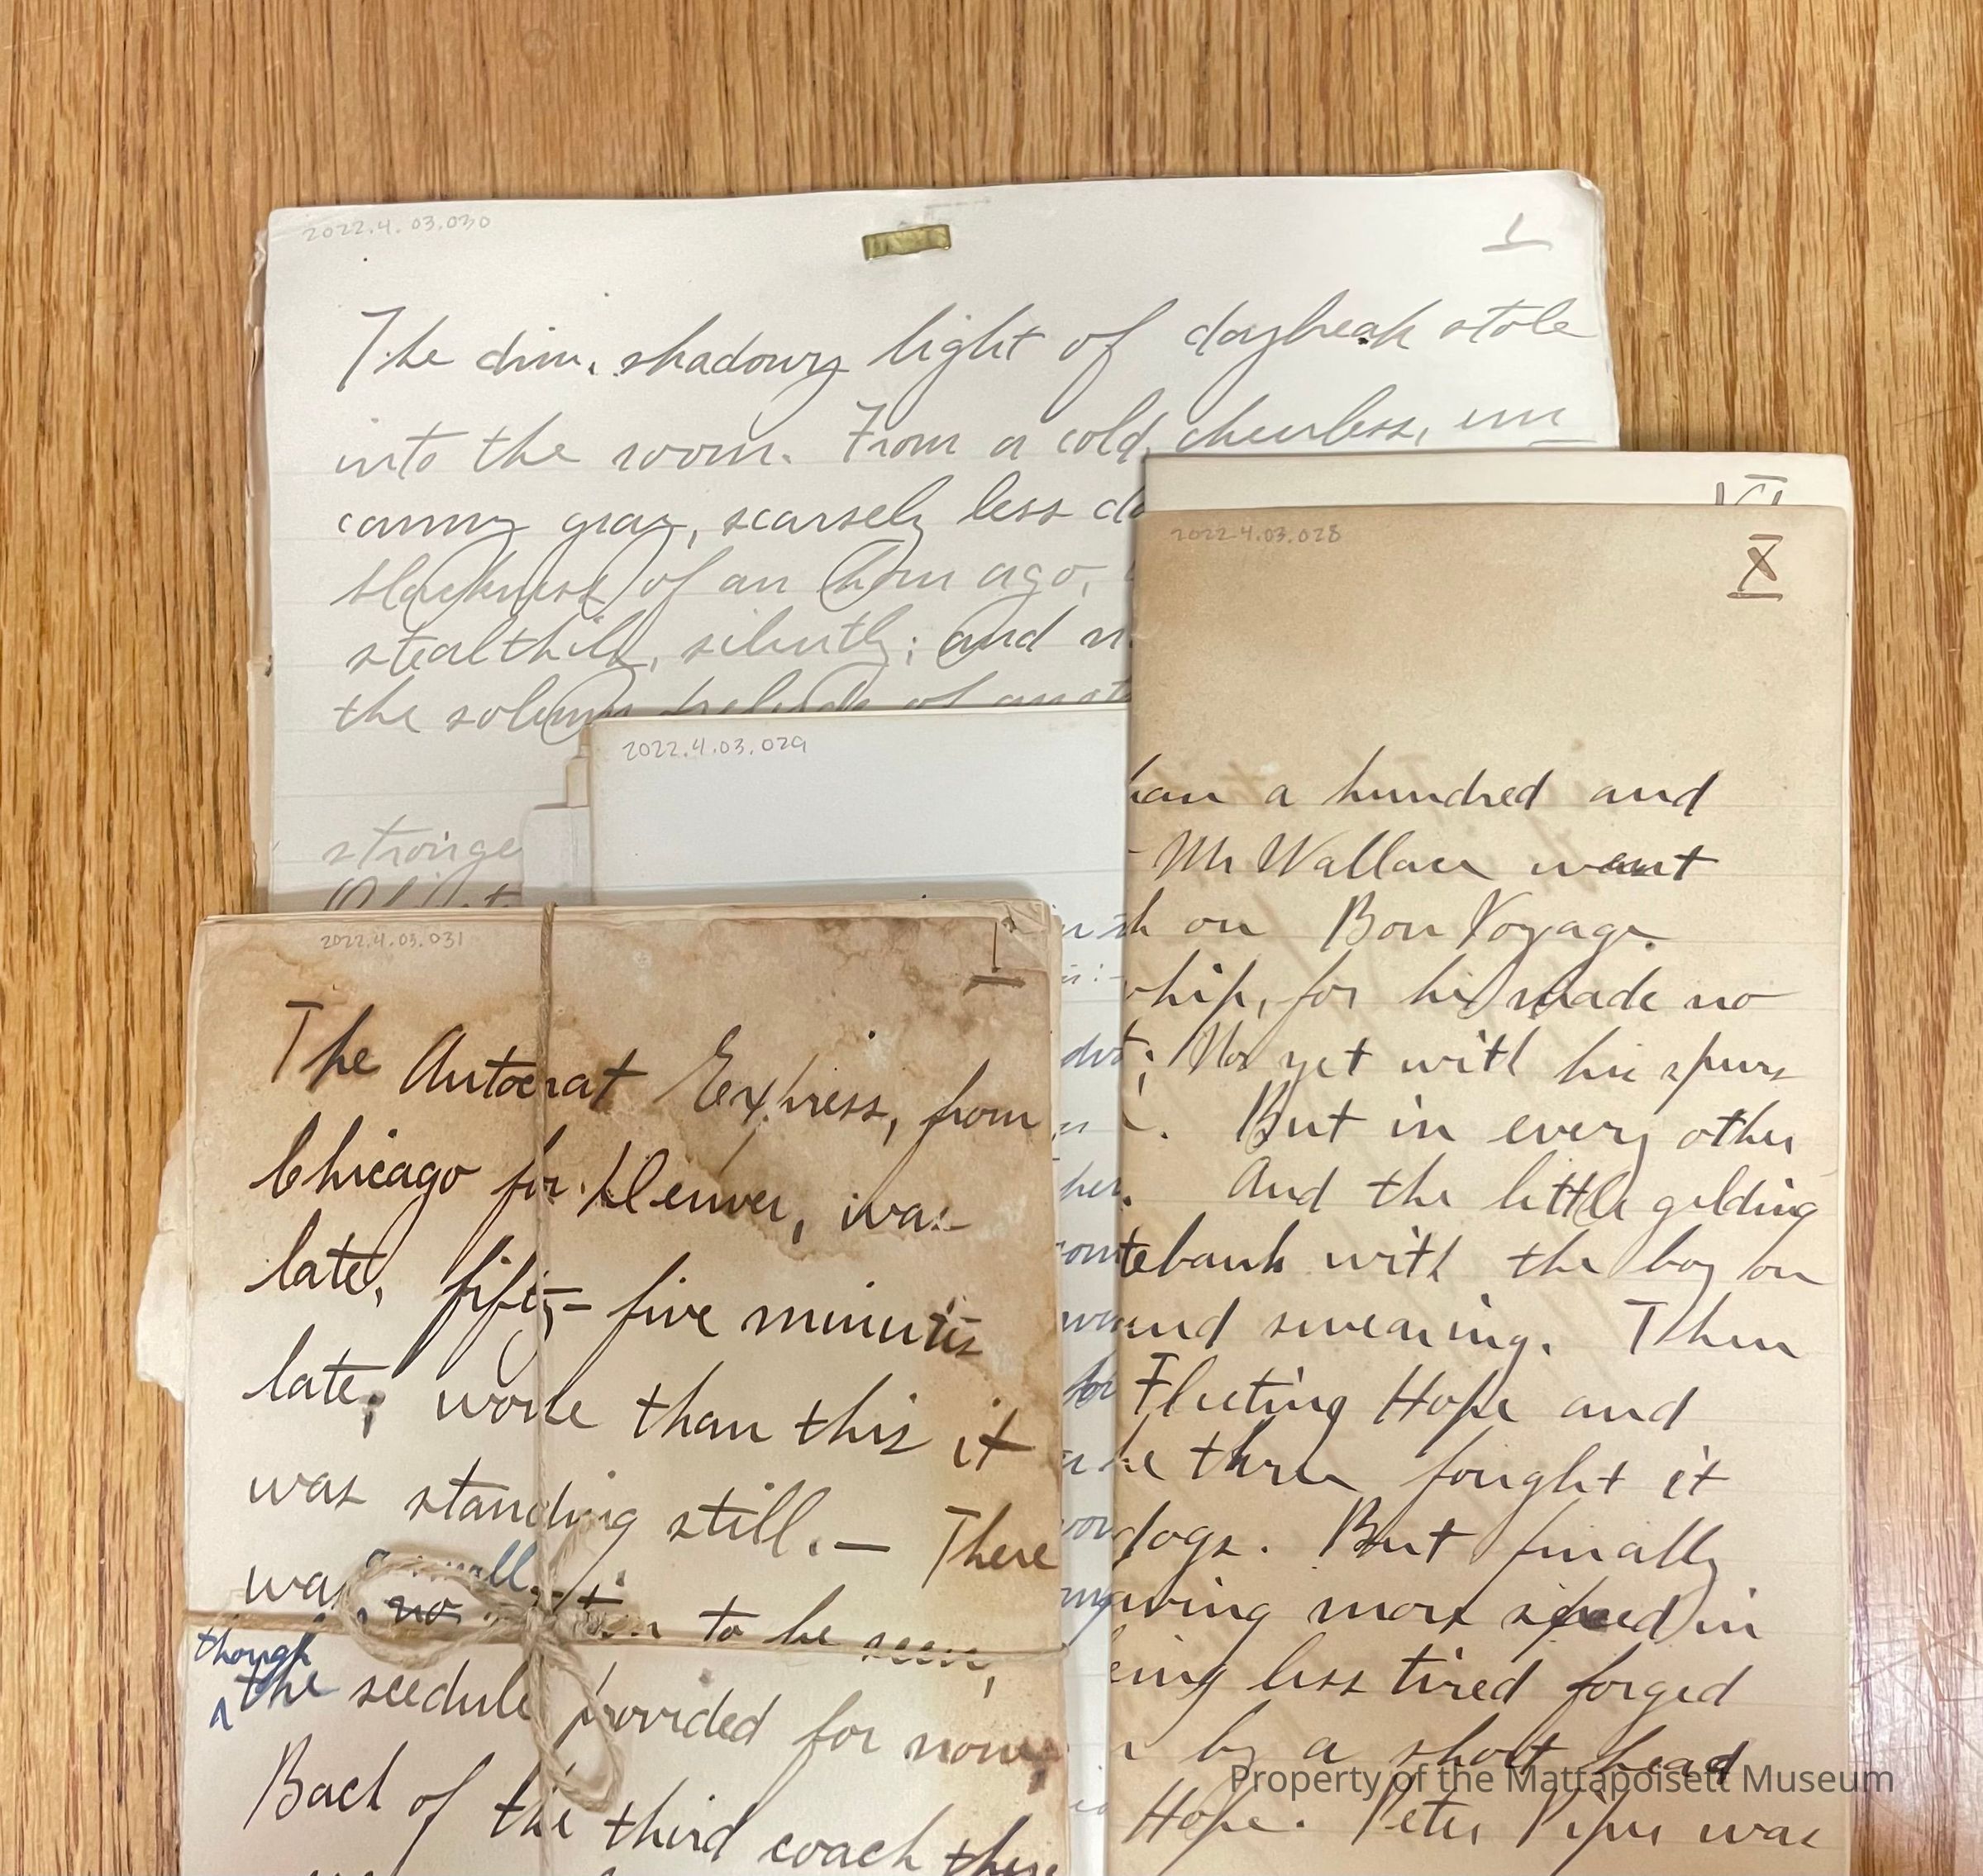 2022.4.03.030
1
The dim, shadowy light of daybreak stole
into the room. From a cold, cheerless, un
canny gray, scarsely less
blackness of an hour ago,
stealthily, silently; and
the solemn prelude of
strange
2022.4.03.029
VI
2022.4.03.028
X
han a hundred and
Mr Wallace want
on Bon Voyage.
whip, for he made no
; Nor yet with his spurs
But in every other
And the little gelding
tebank with the boy on
and swearing. Then
Fleeting Hope and
three fought it
dogs. But finally
aving more speed in
eing less tired forged
by a short head
Hope. Peter Piper was
2022.4.03.031
I
The Autocrat Express, from
Chicago for Denver, was
late, fifty-five minutes
late; worse than this it
was standing still. — There
was no to be seen,
though
the scedule provided for none
Back of the third coach three
Property of the Mattapoisett Museum